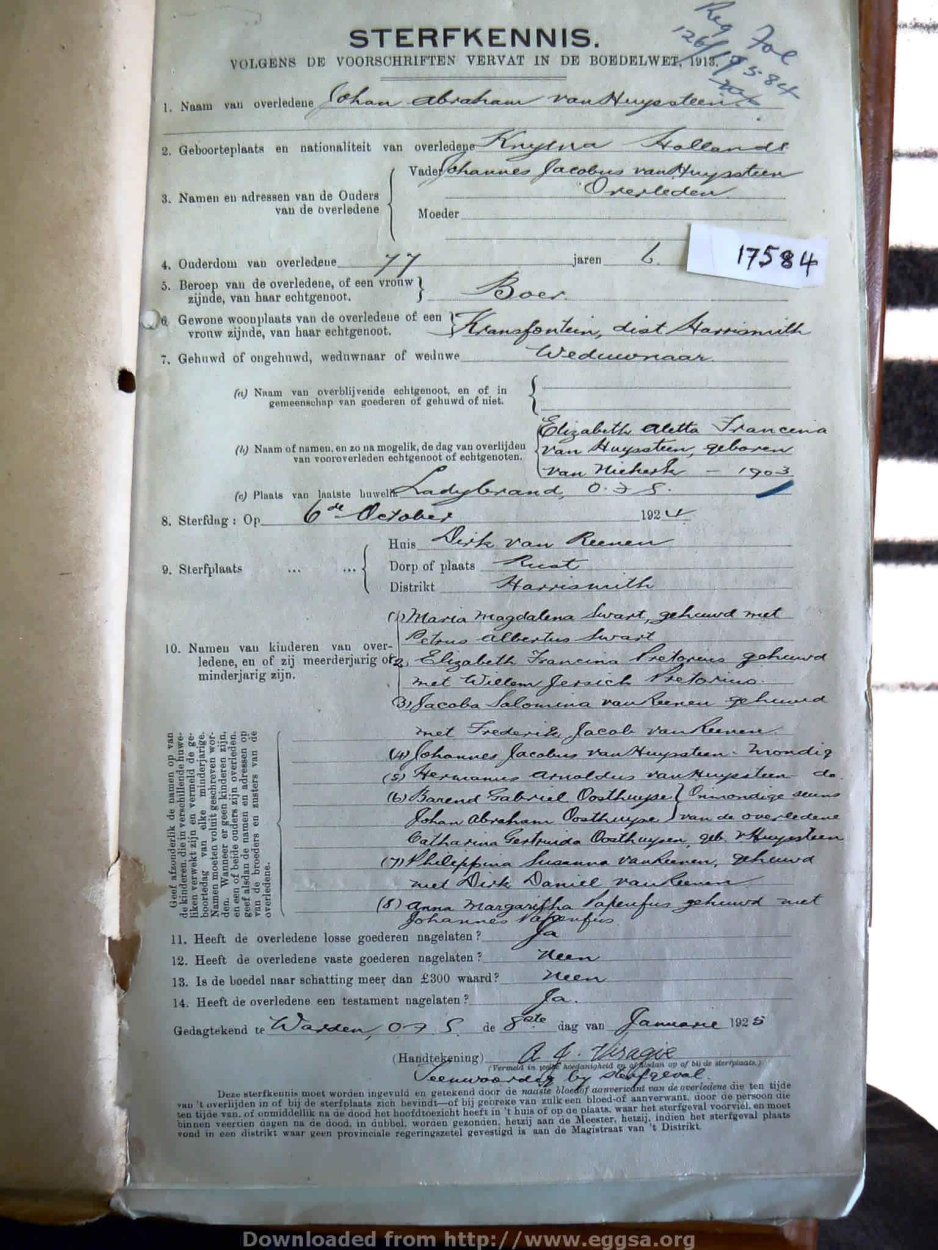 Reg Fol
126/17584
STERFKENNIS.
VOLGENS DE VOORSCHRIFTEN VERVAT IN DE BOEDELWET, 1913.
1. Naam van overledene Johan Abraham van Huyssteen
2. Geboorteplaats en nationaliteit van overledene Knysna Hollands
3. Namen en adressen van de Ouders van de overledene
Vader Johannes Jacobus van Huyssteen
Overleden
Moeder
17584
4. Ouderdom van overledene 77 jaren 6.
5. Beroep van de overledene, of een vrouw
zijnde, van haar echtgenoot. Boer.
6. Gewone woonplaats van de overledene of een
vrouw zijnde, van haar echtgenoot. Kransfontein, dist Harrismith
7. Gehuwd of ongehuwd, weduwnaar of weduwe Weduwnaar
(a) Naam van overblijvende echtgenoot, en of in
gemeenschap van goederen of gehuwd of niet.
Elizabeth Aletta Francina
(b) Naam of namen, en zo na mogelik, de dag van overlijden
van vooroverleden echtgenoot of echtgenoten.
van Huyssteen, geboren
van Niekerk – 1903
(c) Plaats van laatste huwelik Ladybrand, O.F.S.
8. Sterfdag: Op 6de October 1924
9. Sterfplaats ... ...
Huis Dirk van Reenen
Dorp of plaats Rust
Distrikt Harrismith
10. Namen van kinderen van over-
ledene, en of zij meerderjarig of
minderjarig zijn.
(1) Maria Magdalena Swart, gehuwd met
Petrus Albertus Swart
2, Elizabeth Francina Pretorius gehuwd
met Willem Pretorius.
(3) Jacoba Salomina van Reenen gehuwd
met Frederik Jacob van Reenen.
(4) Johannes Jacobus van Huyssteen - mondig
(5) Hermanus Arnoldus van Huyssteen do.
(6) Barend Gabriel Oosthuyse { Onmondige seuns
Johan Abraham Oosthuyse } van de overledene
Catharina Gertruida Oosthuysen, geb. v Huyssteen
(7) Philippina Susanna van Reenen, gehuwd
met Dirk Daniel van Reenen
(8) Anna Margaretha Papenfus gehuwd met
Johannes Papenfus.
Geef afzonderlik de namen op van
de kinderen, die in verschillende huwe-
liken verwekt zijn en vermeld de ge-
boortedag van elke minderjarige.
Namen moeten voluit geschreven wor-
den. Wanneer er geen kinderen zijn,
en een of beide ouders zijn overleden,
geef alsdan de namen en adressen op
van de broeders en zusters van de
overledene.
11. Heeft de overledene losse goederen nagelaten? Ja
12. Heeft de overledene vaste goederen nagelaten? Neen
13. Is de boedel naar schatting meer dan £300 waard? Neen
14. Heeft de overledene een testament nagelaten? Ja.
Gedagtekend te Warden, O F S. de 8ste dag van Januarie 1925
(Handtekening) A. J. Viragie
(Vermeld in welke hoedanigheid en of alsdan op of bij de sterfplaats.)
Teenwoordig by sterfgeval.
Deze sterfkennis moet worden ingevuld en getekend door de naaste bloed of aanverwant van de overledene die ten tijde
van 't overlijden in of bij de sterfplaats zich bevindt—of bij gebreke van zulk een bloed-of aanverwant, door de persoon die
ten tijde van, of onmiddellik na de dood het hoofdtoezicht heeft in 't huis of op de plaats, waar het sterfgeval voorviel, en moet
binnen veertien dagen na de dood, in dubbel, worden gezonden, hetzij aan de Meester, hetzij, indien het sterfgeval plaats
vond in een distrikt waar geen provinciale regeringszetel gevestigd is aan de Magistraat van 't Distrikt.
Downloaded from http://www.eggsa.org